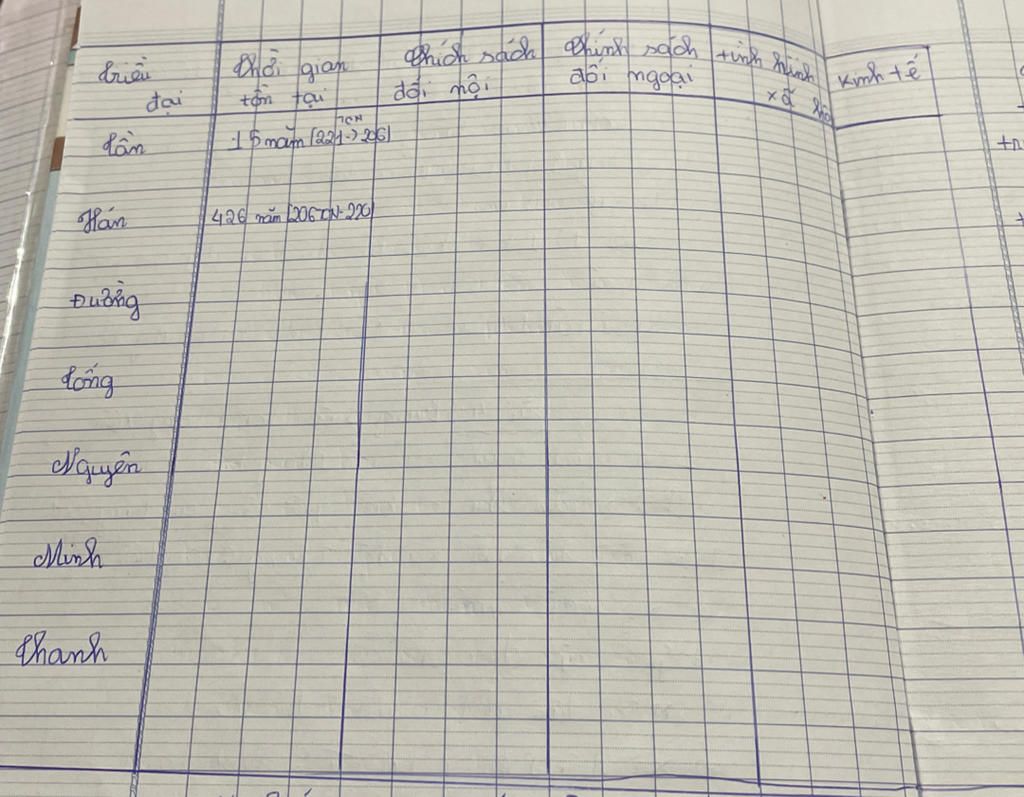 triều đại
thời gian tồn tại
chích sách đối nội
chính sách đối ngoại
tình hình xã hội
kinh tế
tần
15 năm (221 -> 206)
TCN
Hán
426 năm (206 TCN - 220)
Đường
tống
Nguyên
Minh
thanh